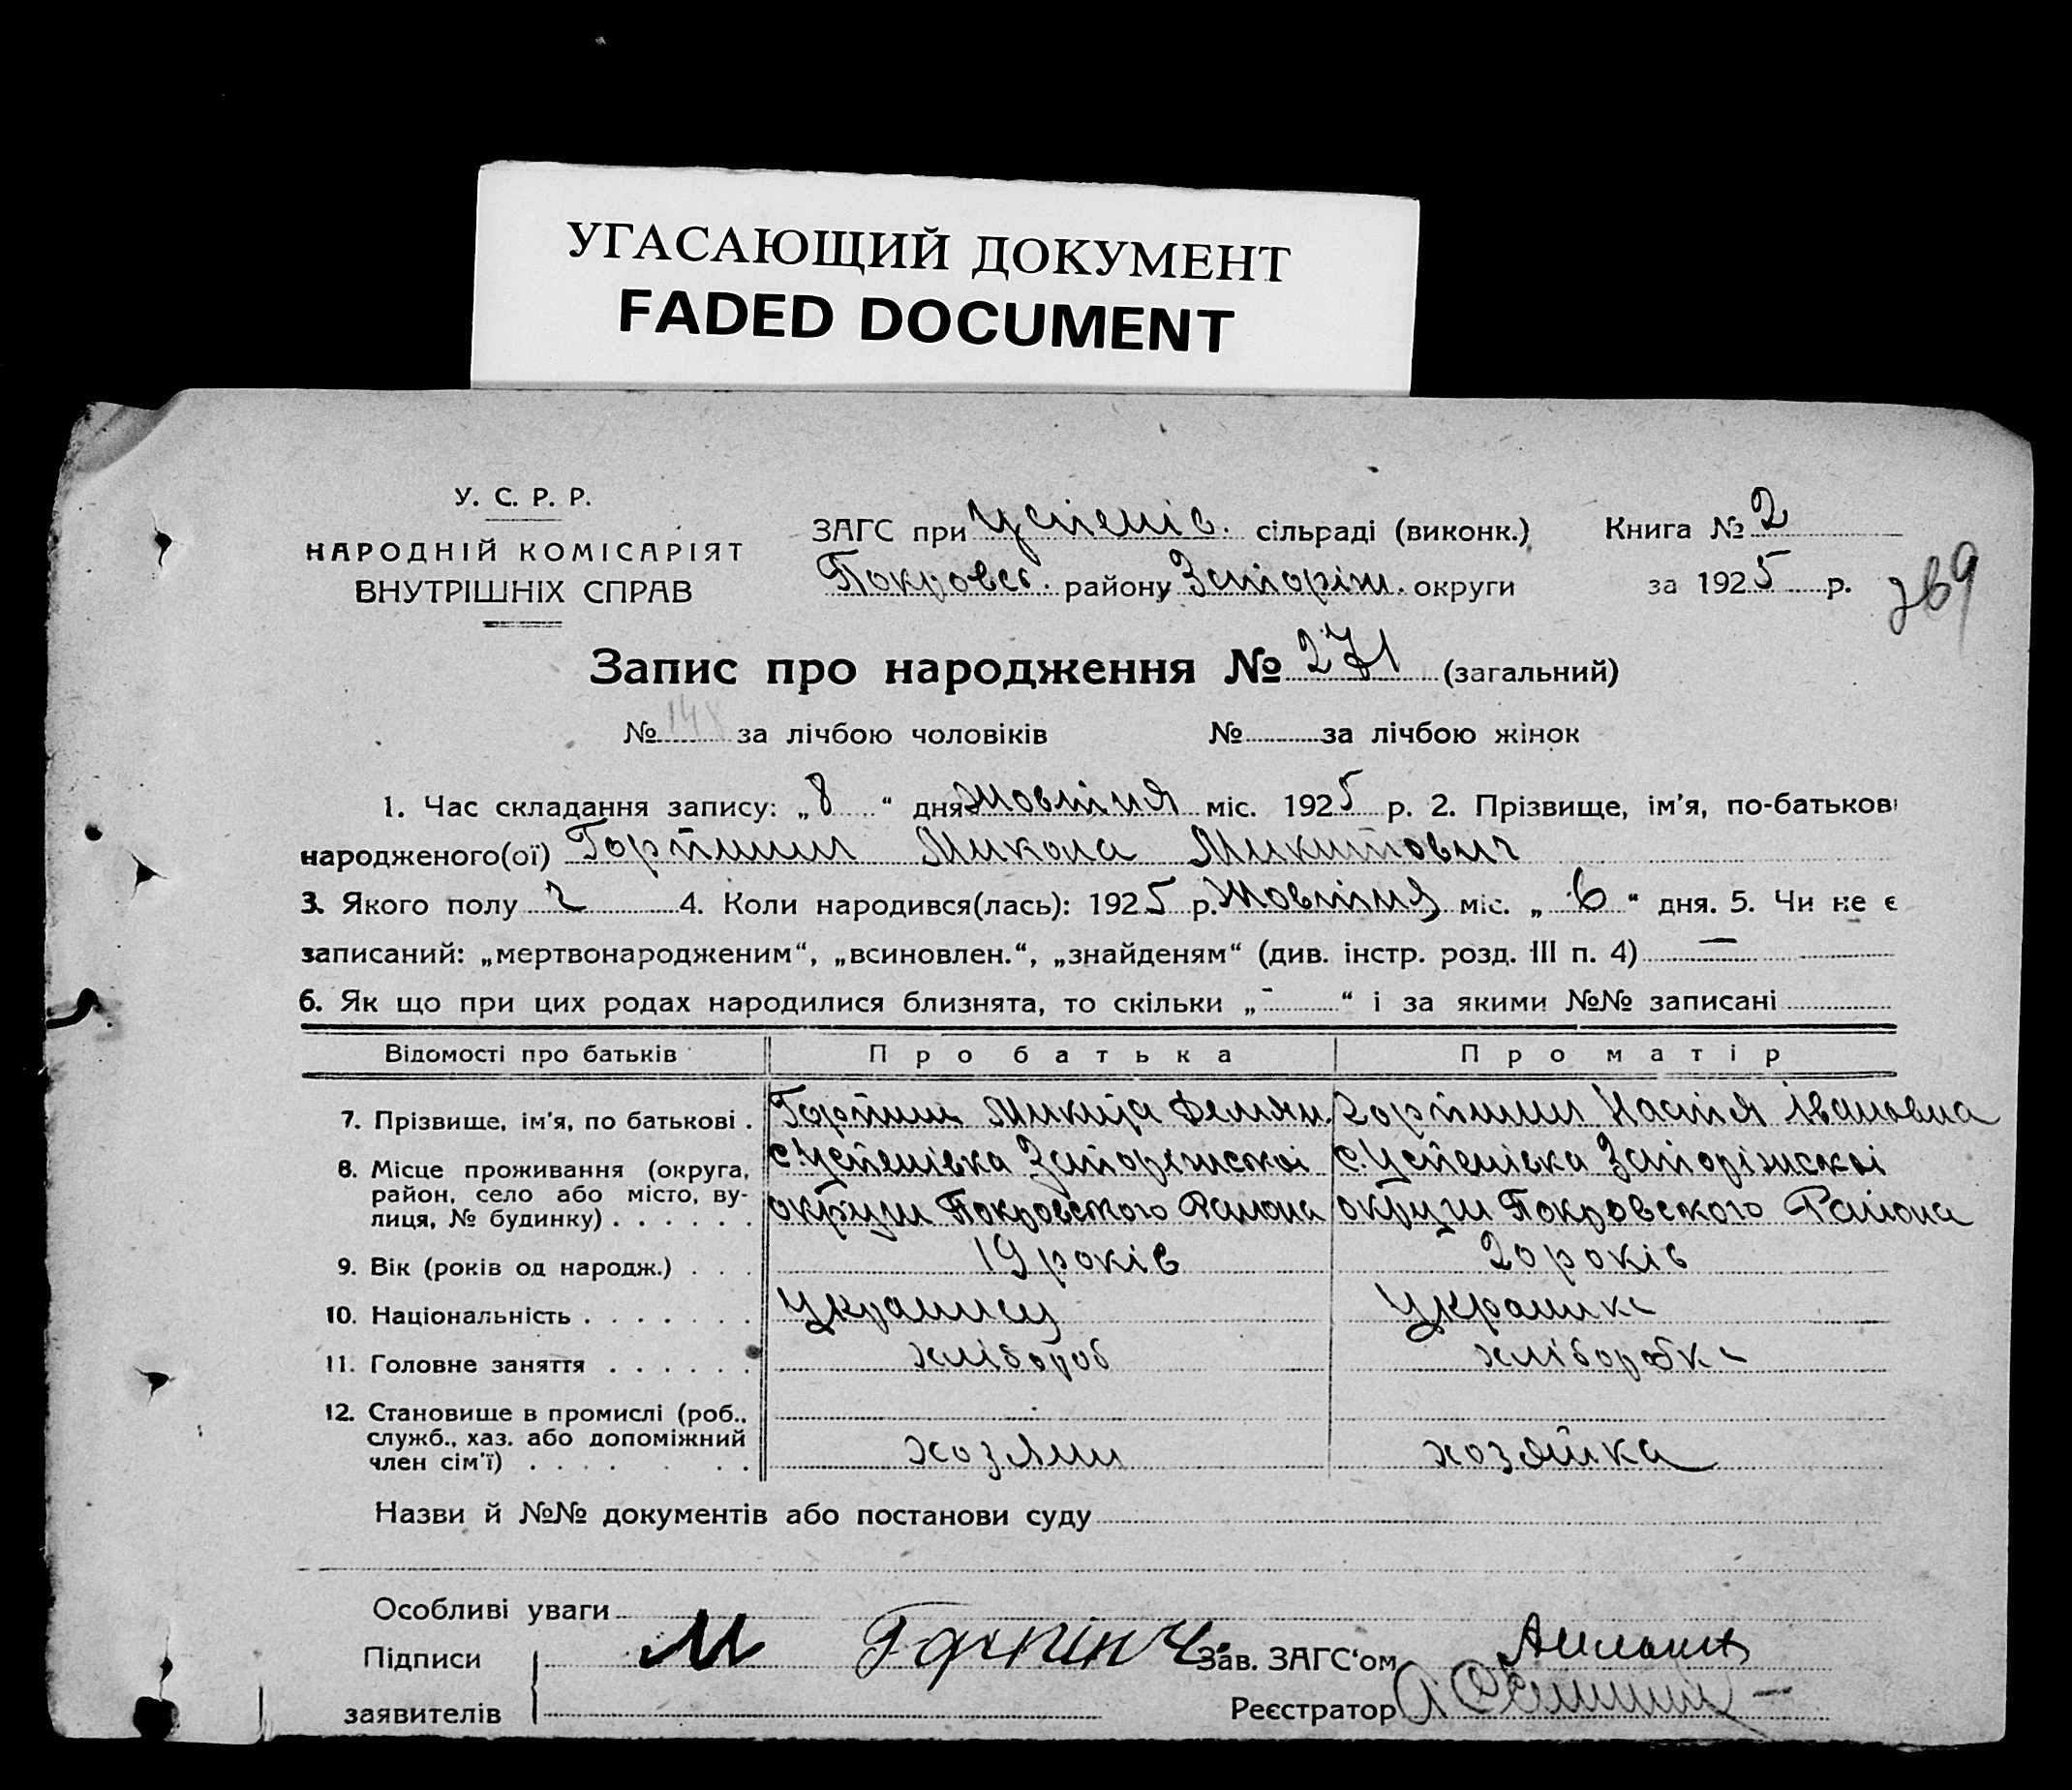 УГАСАЮЩИЙ ДОКУМЕНТ
FADED DOCUMENT
У. С. Р. Р.
НАРОДНІЙ КОМІСАРІЯТ
ВНУТРІШНІХ СПРАВ
ЗАГС при Успенів. сільраді (виконк.)
Покровск. району Запоріж. округи
Книга № 2
за 1925 р.
269
Запис про народження № 271 (загальний)
№ 148 за лічбою чоловіків № за лічбою жінок
1. Час складання запису: „8“ дня Жовтня міс. 1925 р. 2. Прізвище, ім'я, по-батькові
народженого(ої) Горпинич Микола Микитович
3. Якого полу ч 4. Коли народився(лась): 1925 р. Жовтня міс. „6“ дня. 5. Чи не є
записаний: „мертвонародженим“, „всиновлен.“, „знайденям“ (див. інстр. розд. III п. 4) —
6. Як що при цих родах народилися близнята, то скільки „-“ і за якими №№ записані
Відомості про батьків Про батька Про матір
7. Прізвище, ім'я, по батькові . Горпинич Микита Демян. Горпинич Настя Івановна
8. Місце проживання (округа, с. Успенівка Запоріжскоі с. Успенівка Запоріжскоі
район, село або місто, ву-
лиця, № будинку) . . . . . . округи Покровского Района округи Покровского Района
9. Вік (років од народж.) . . . 19 років 20 років
10. Національність . . . . . . . Украинец Украинка
11. Головне заняття . . . . . . хлібороб хліборобка
12. Становище в промислі (роб.,
служб., хаз. або допоміжний
член сім'ї) . . . . . . хозяин хозяйка
Назви й №№ документів або постанови суду
Особливі уваги
Підписи М Горпінич Зав. ЗАГС'ом
заявителів Реєстратор